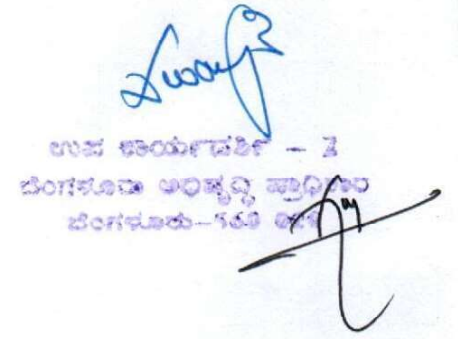 ಉಪ ಕಾರ್ಯದರ್ಶಿ – 3
ಬೆಂಗಳೂರು ಅಭಿವೃದ್ಧಿ ಪ್ರಾಧಿಕಾರ
ಬೆಂಗಳೂರು–560 020